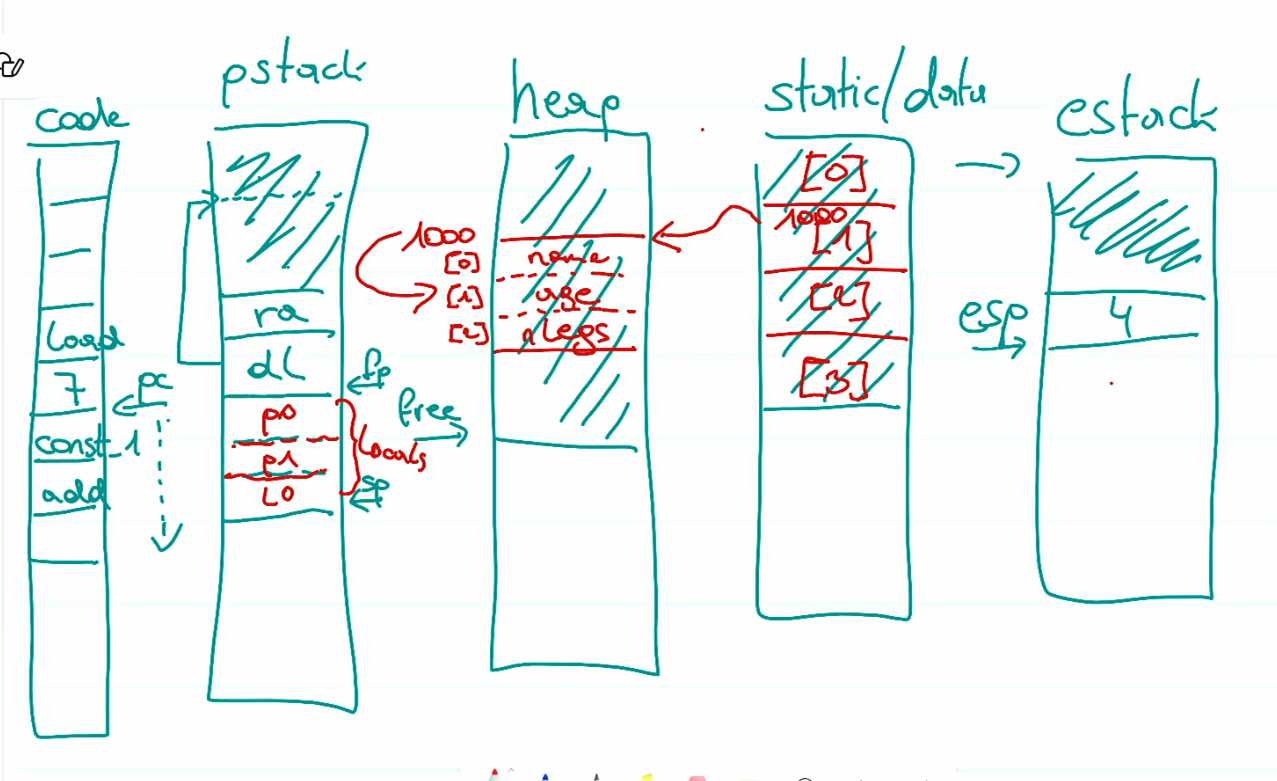 code
load
7
const_1
add
pc
pstack
ra
dl
fp
p0
p1
L0
locals
sp
heap
1000
[0] name
[1] age
[2] nlegs
free
static/data
[0]
1000
[1]
[2]
[3]
estack
esp
4